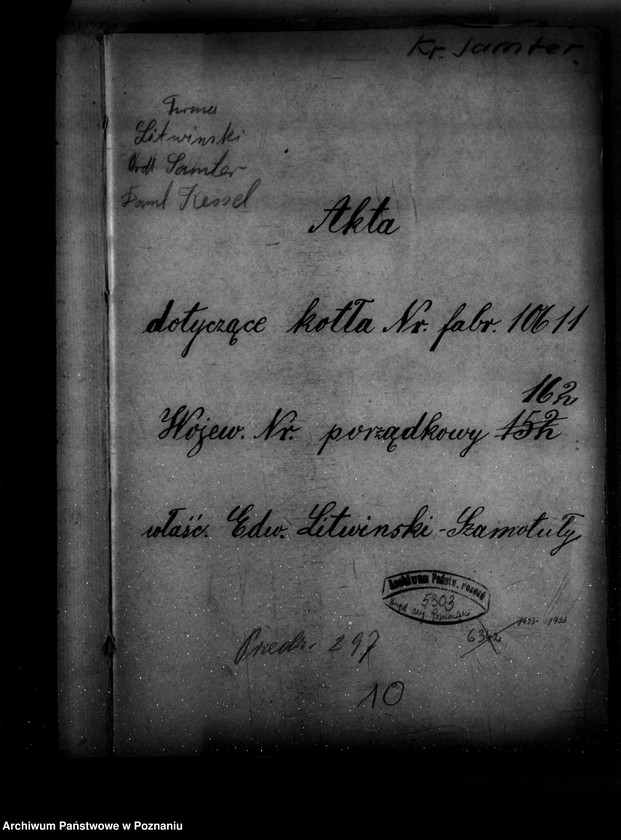 Kr. Samter.
Firma
Litwinski
Samter
Kessel
Akta
dotyczące kotła Nr. fabr. 10611
162
Wojew. Nr. porządkowy 152
właść. Edw. Litwinski - Szamotuły
Archiwum Państw. POZNAŃ
5303
Urząd Woj. Poznański
1923-1935
297
10
Archiwum Państwowe w Poznaniu